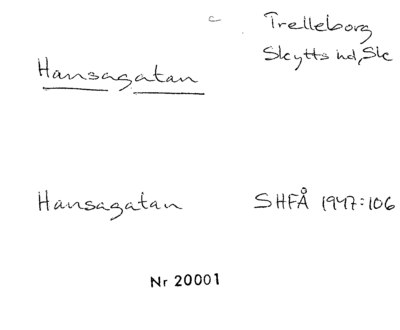 Trelleborg
Skytts hd, Sk
Hansagatan
Hansagatan SHFÅ 1947:106
Nr 20001